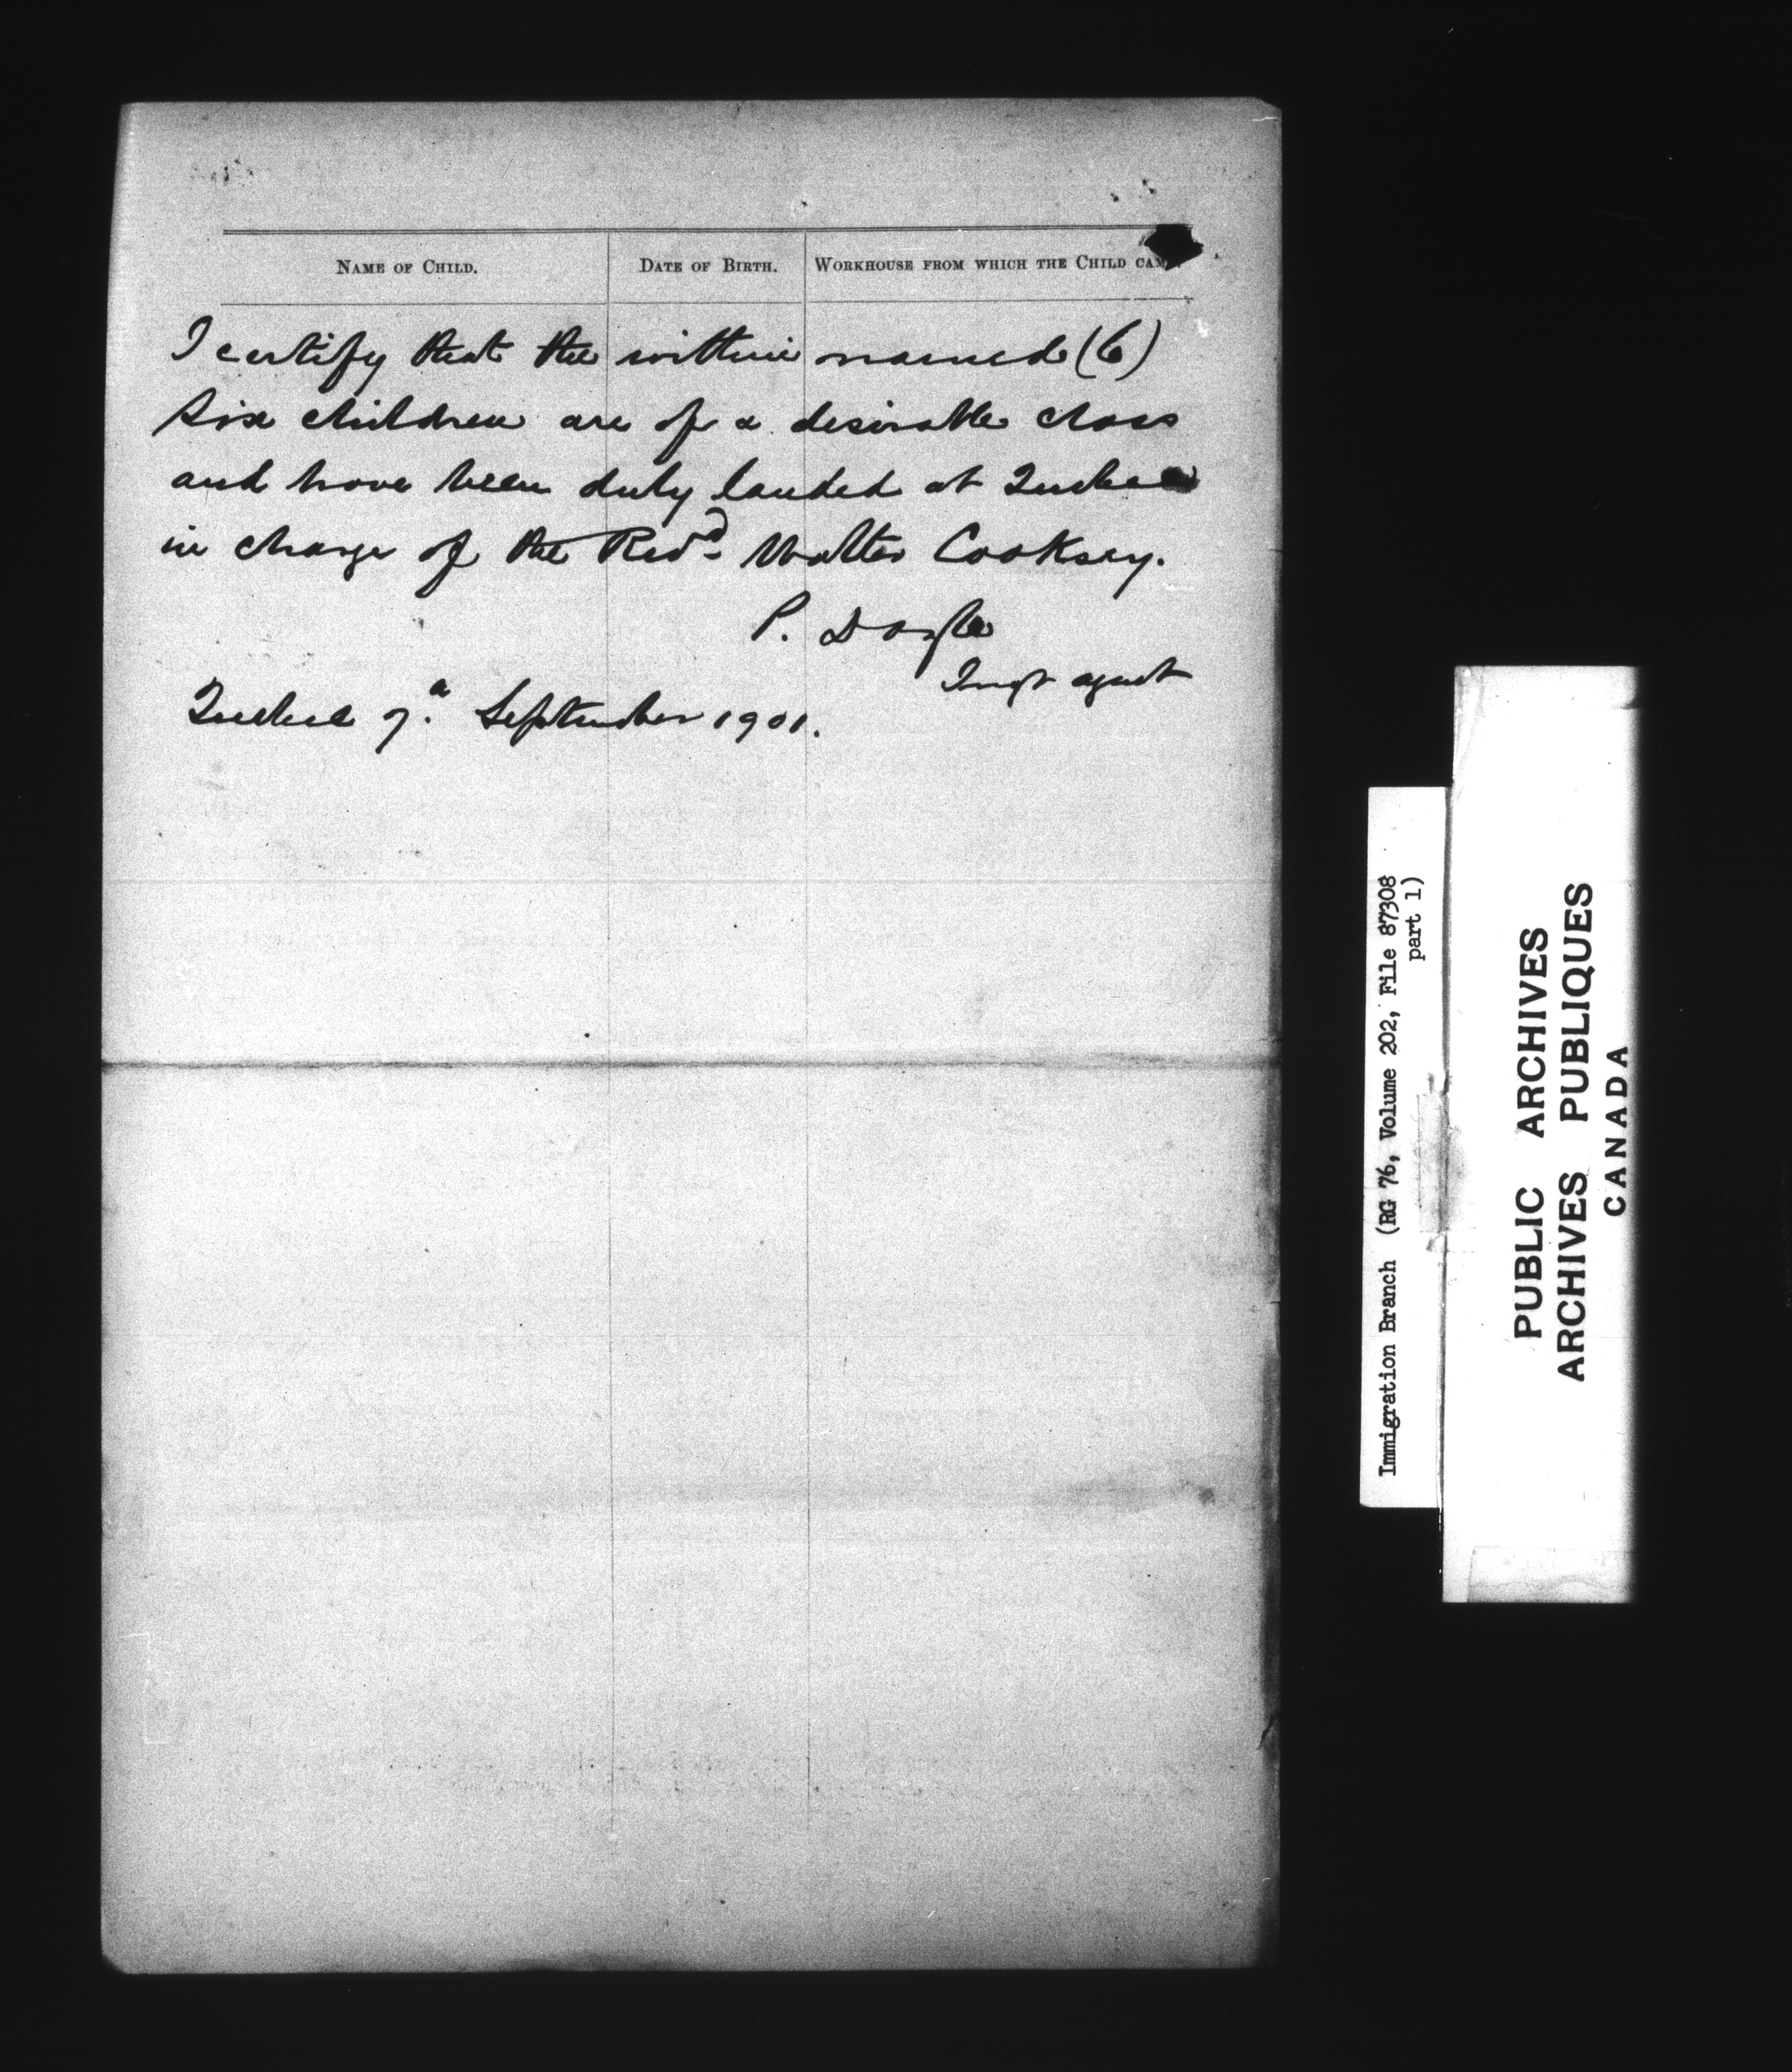 NAME OF CHILD. DATE OF BIRTH. WORKHOUSE FROM WHICH THE CHILD CAME.
I certify that the within named (6)
six children are of a desirable class
and have been duly landed at Quebec
in charge of the Revd. Walter Cooksey.
P. Doyle
Imgt agent
Quebec 7th September 1901.
Immigration Branch (RG 76, Volume 202, File 87308
part 1)
PUBLIC ARCHIVES
ARCHIVES PUBLIQUES
CANADA